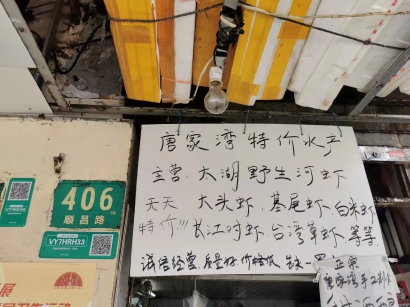 唐家湾特价水产
主营：太湖野生河虾
天天 大头虾、基尾虾、白米虾
特价!!! 长江河虾 台湾草虾 等等
诚信经营 质量好 价格低
正宗
406
顺昌路
VY7HRH33